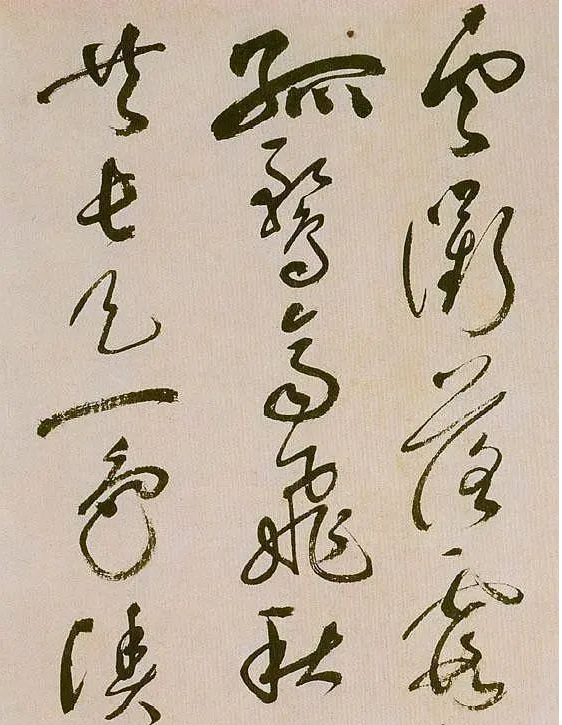 雲衢落霞
孤鶩齊飛秋
共長天一色漁